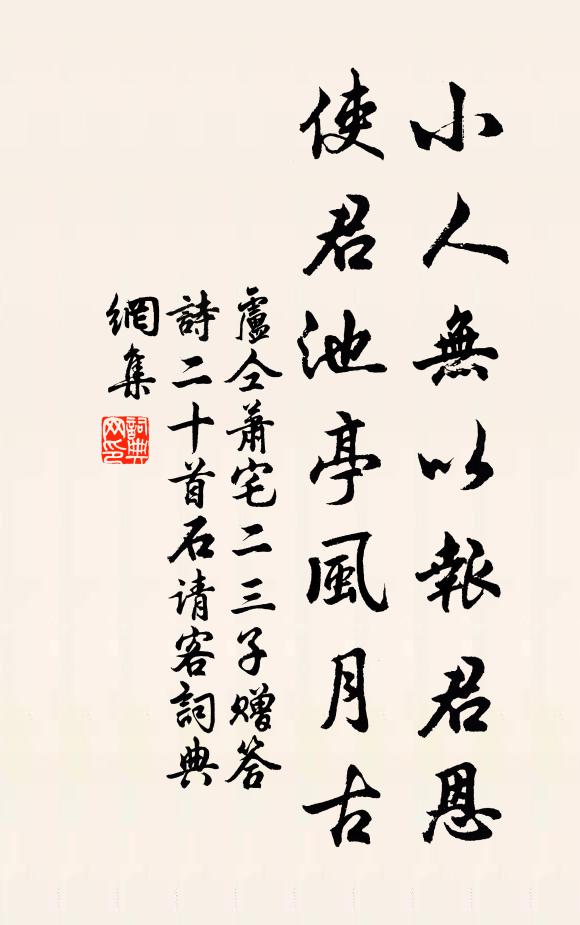 小人無以報君恩
使君池亭風月古
盧仝蕭宅二三子贈答
詩二十首石请客詞典
網集
詞典
网印